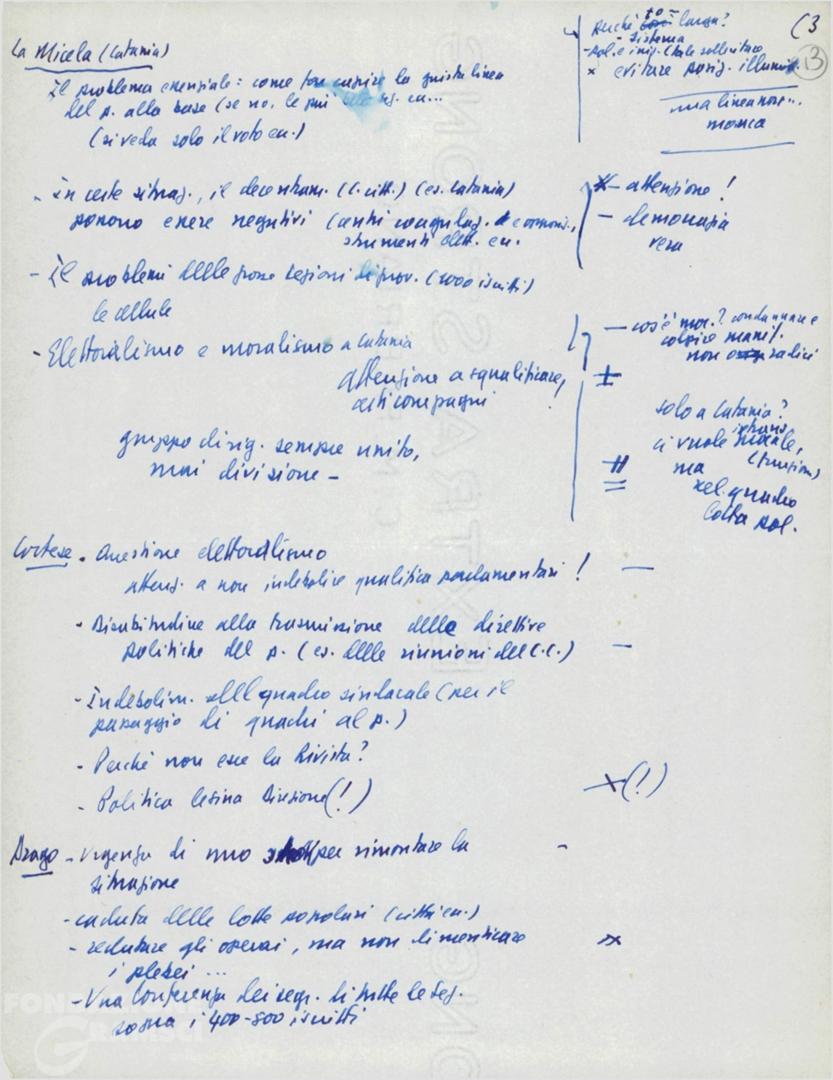 (3
13
La Micela (Catania)
Il problema essenziale: come far capire la giusta linea
del p. alla base (se no, le più
(si veda solo il voto ecc.)
- In certe situaz., il decentram. (C. citt.) (es. Catania)
possono essere negativi (centri coagulaz.
strumenti elett. ecc.
- Il problemi delle grosse sezioni di prov. (1000 iscritti)
le cellule
- Elettoralismo e moralismo a Catania
attenzione a squalificare,
certi compagni !
gruppo dirig. sempre unito,
mai divisione -
Perché larga?
- Sistema
x evitare posiz. illumin.
una linea
monca
x - attenzione !
- democrazia
vera
- cos'è mor.? condannare e
colpire manif.
non radici
±
solo a Catania?
ci vuole morale,
ma (funzion)
nel quadro
lotta pol.
Cortese - Questione elettoralismo
attenz. a non indebolire qualifica parlamentari ! -
- Disabitudine alla trasmissione delle direttive
politiche del p. (es. delle riunioni del C.C.) -
- Indebolim. del quadro sindacale (per il
passaggio di quadri al p.)
- Perché non esce la Rivista?
- Politica lesina Direzione (!) x (!)
Drago - Urgenza di uno per rimontare la -
situazione
- caduta delle lotte popolari (città ecc.)
- reclutare gli operai, ma non dimenticare x
i plebei ...
- Una Conferenza dei segr. di tutte le sez.
sopra i 400-500 iscritti
FONDAZIONE
GRAMSCI